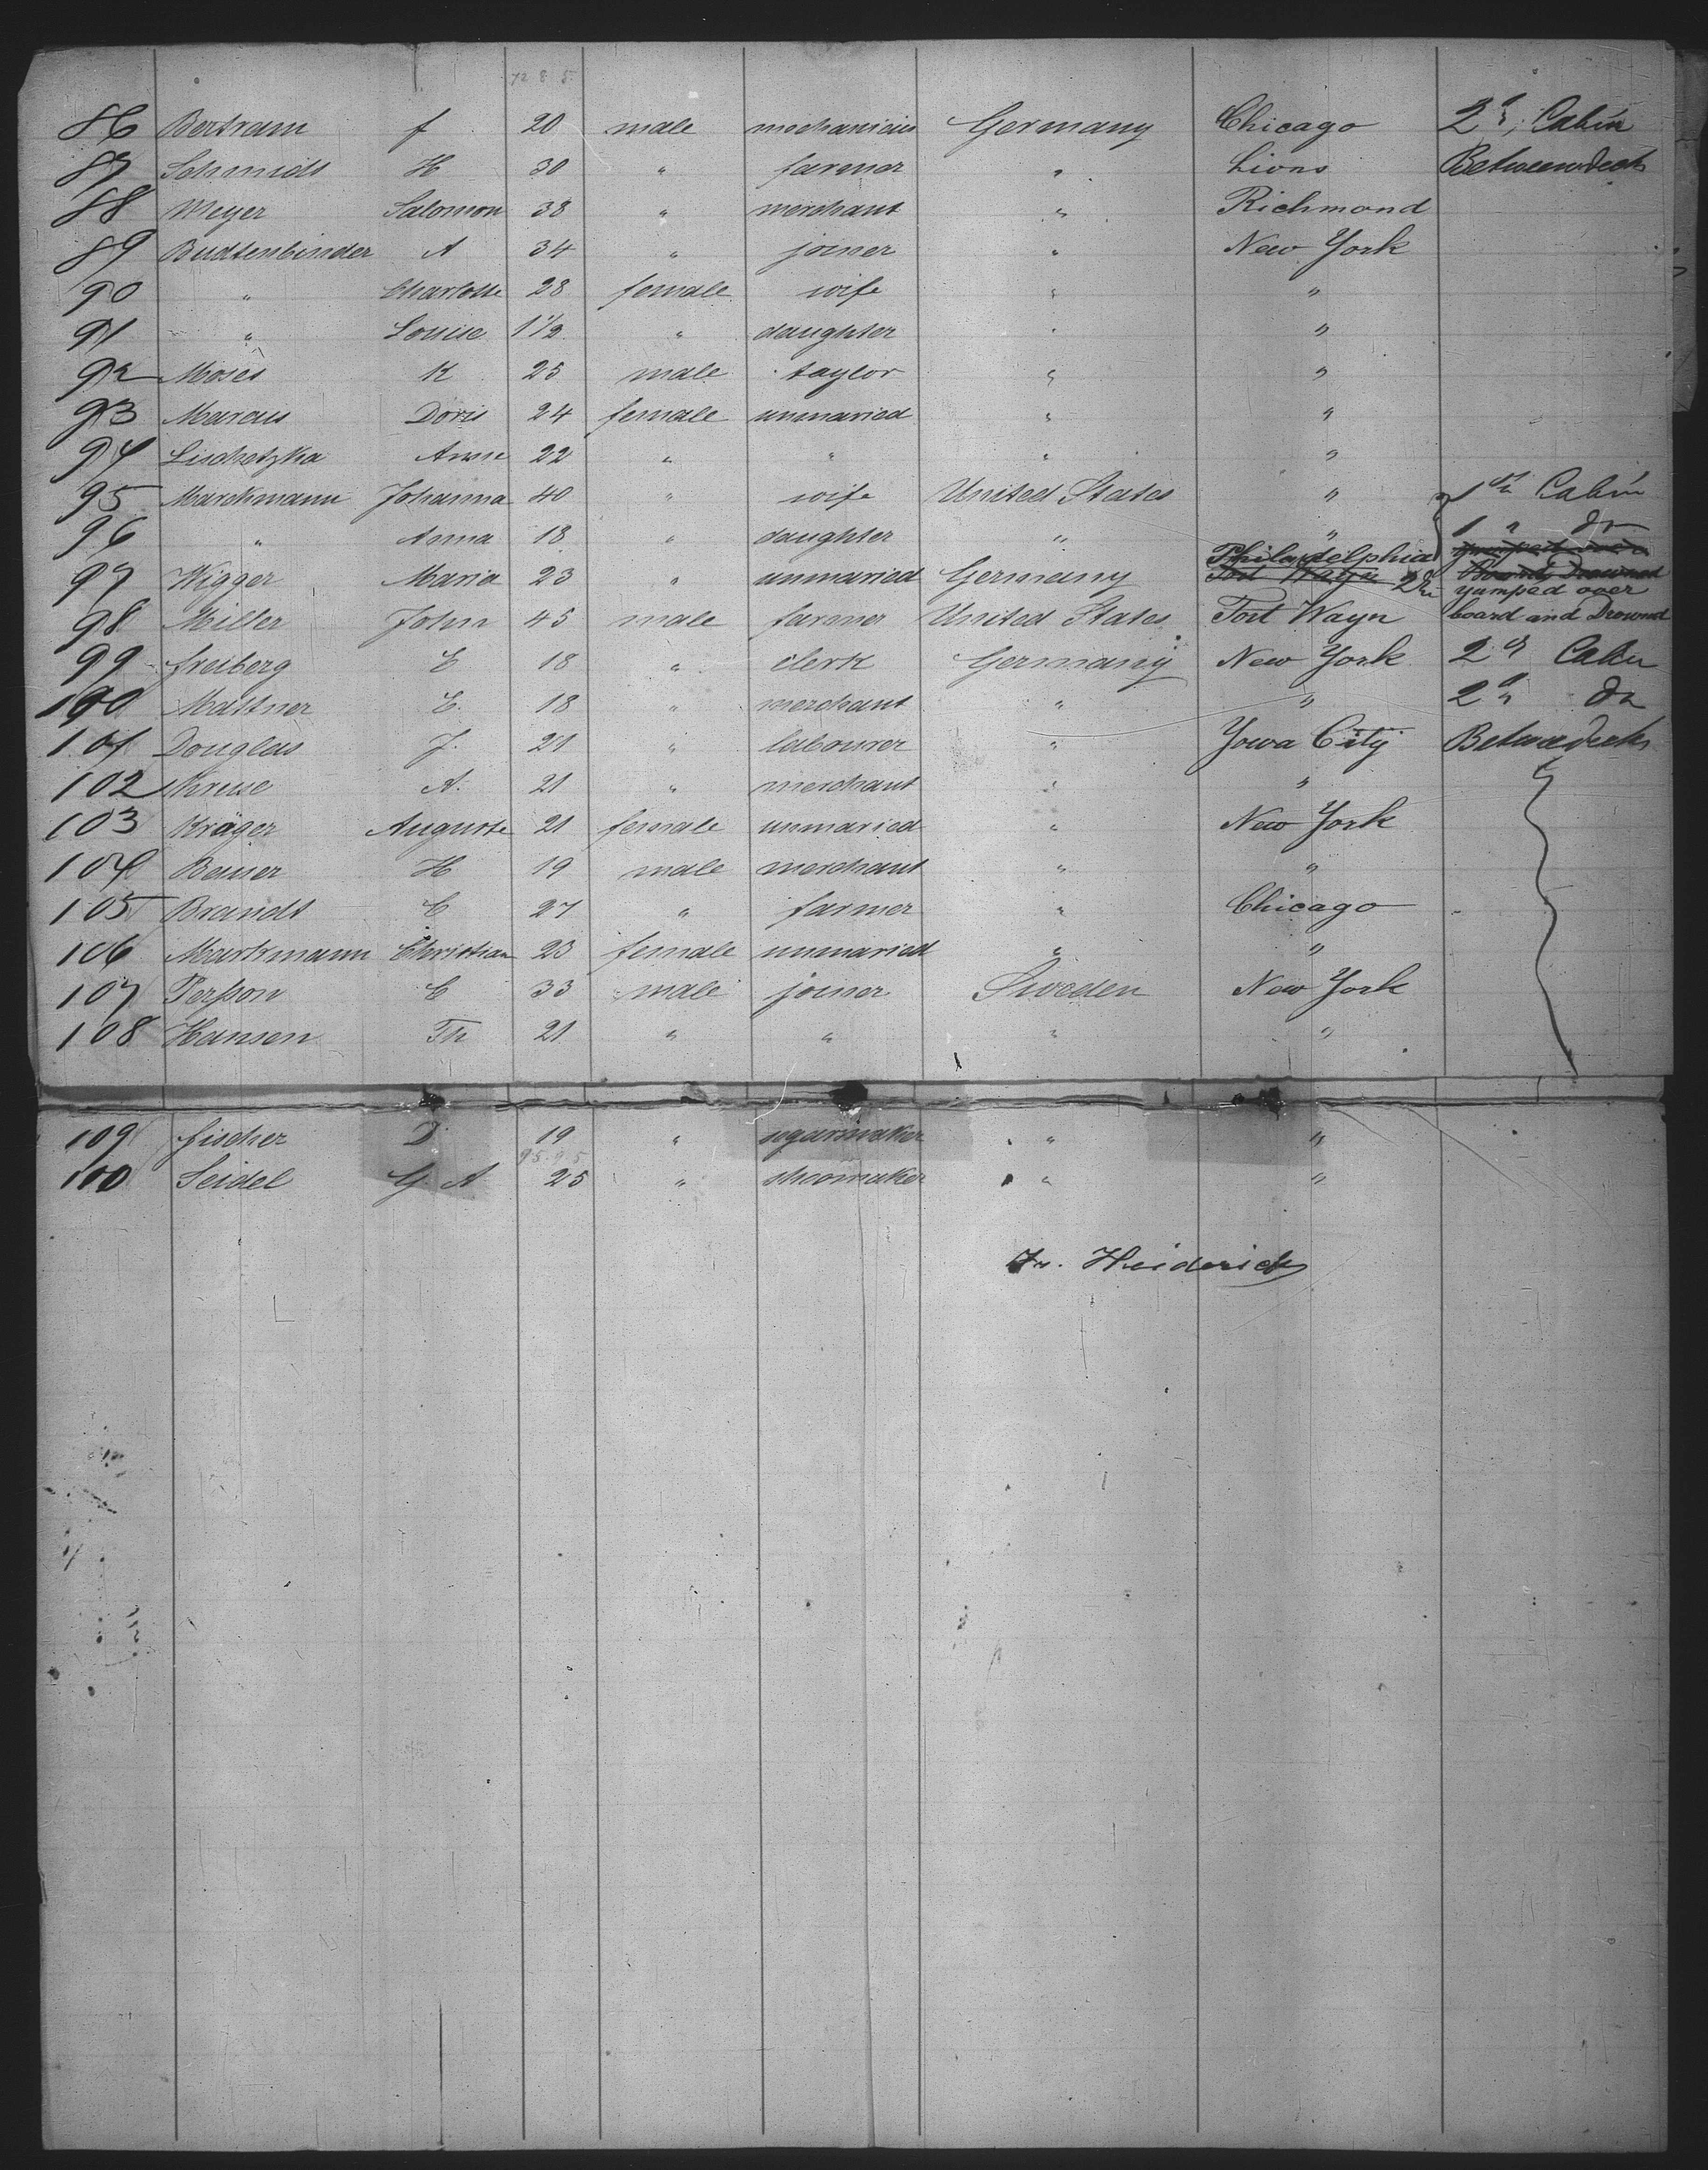 72 8 5
86 Bertram f 20 male mechanicus Germany Chicago 2d, Cabin
87 Schmidt H 30 " farmer " Lions Betweendeck
88 Meyer Salomon 38 " merchant " Richmond
89 Budtenbinder A 34 " joiner " New York
90 " Charlotte 28 female wife " "
91 " Louise 1 1/2 " daughter " "
92 Moses K 25 male taylor " "
93 Marcus Doris 24 female unmaried " "
94 Lischetzka Anne 22 " " " "
95 Marckmann Johanna 40 " wife United States " 1st Cabin
96 " Anna 18 " daughter " " 1 " do
97 Wigger Maria 23 " unmaried Germany Philadelphia Fort Wayn yumped over board, Drowned
98 Miller John 45 male farmer United States Fort Wayn yumped over board and Drownd
99 freiberg E 18 " clerk Germany New York 2d Cabin
100 Mattner E. 18 " merchant " " 2d do
101 Douglas J. 21 " labourer " Yowa City Betweedeck
102 Kruse A. 21 " merchant " "
103 Kräger Auguste 21 female unmaried " New York
104 Beuser H 19 male merchant " "
105 Brandt C 27 " farmer " Chicago
106 Markmann Christian 23 female unmaried " "
107 Perſson C 33 male joiner Sweden New York
108 Hansen Th 21 " " " "
109 fischer D 19 " segarmaker " "
95.95
100 Seidel G. A 25 " shoomaker " "
Fr. Heiderich